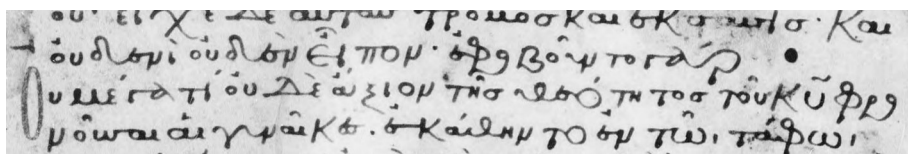 ου· εἶχε δὲ αὐτὰς τρόμος καὶ ἔκστασις· Και
ὀυδενὶ ὀυδὲν εἶπον· ἐφοβοῦντο γάρ ·
Ου μέγα τί ὀυδὲ ἄξιον τῆς θεότητος τοῦ κῡ φρο
νοῦσαι αἱ γυναῖκες. ἐκάθηντο ἐν τῶι τάφωι